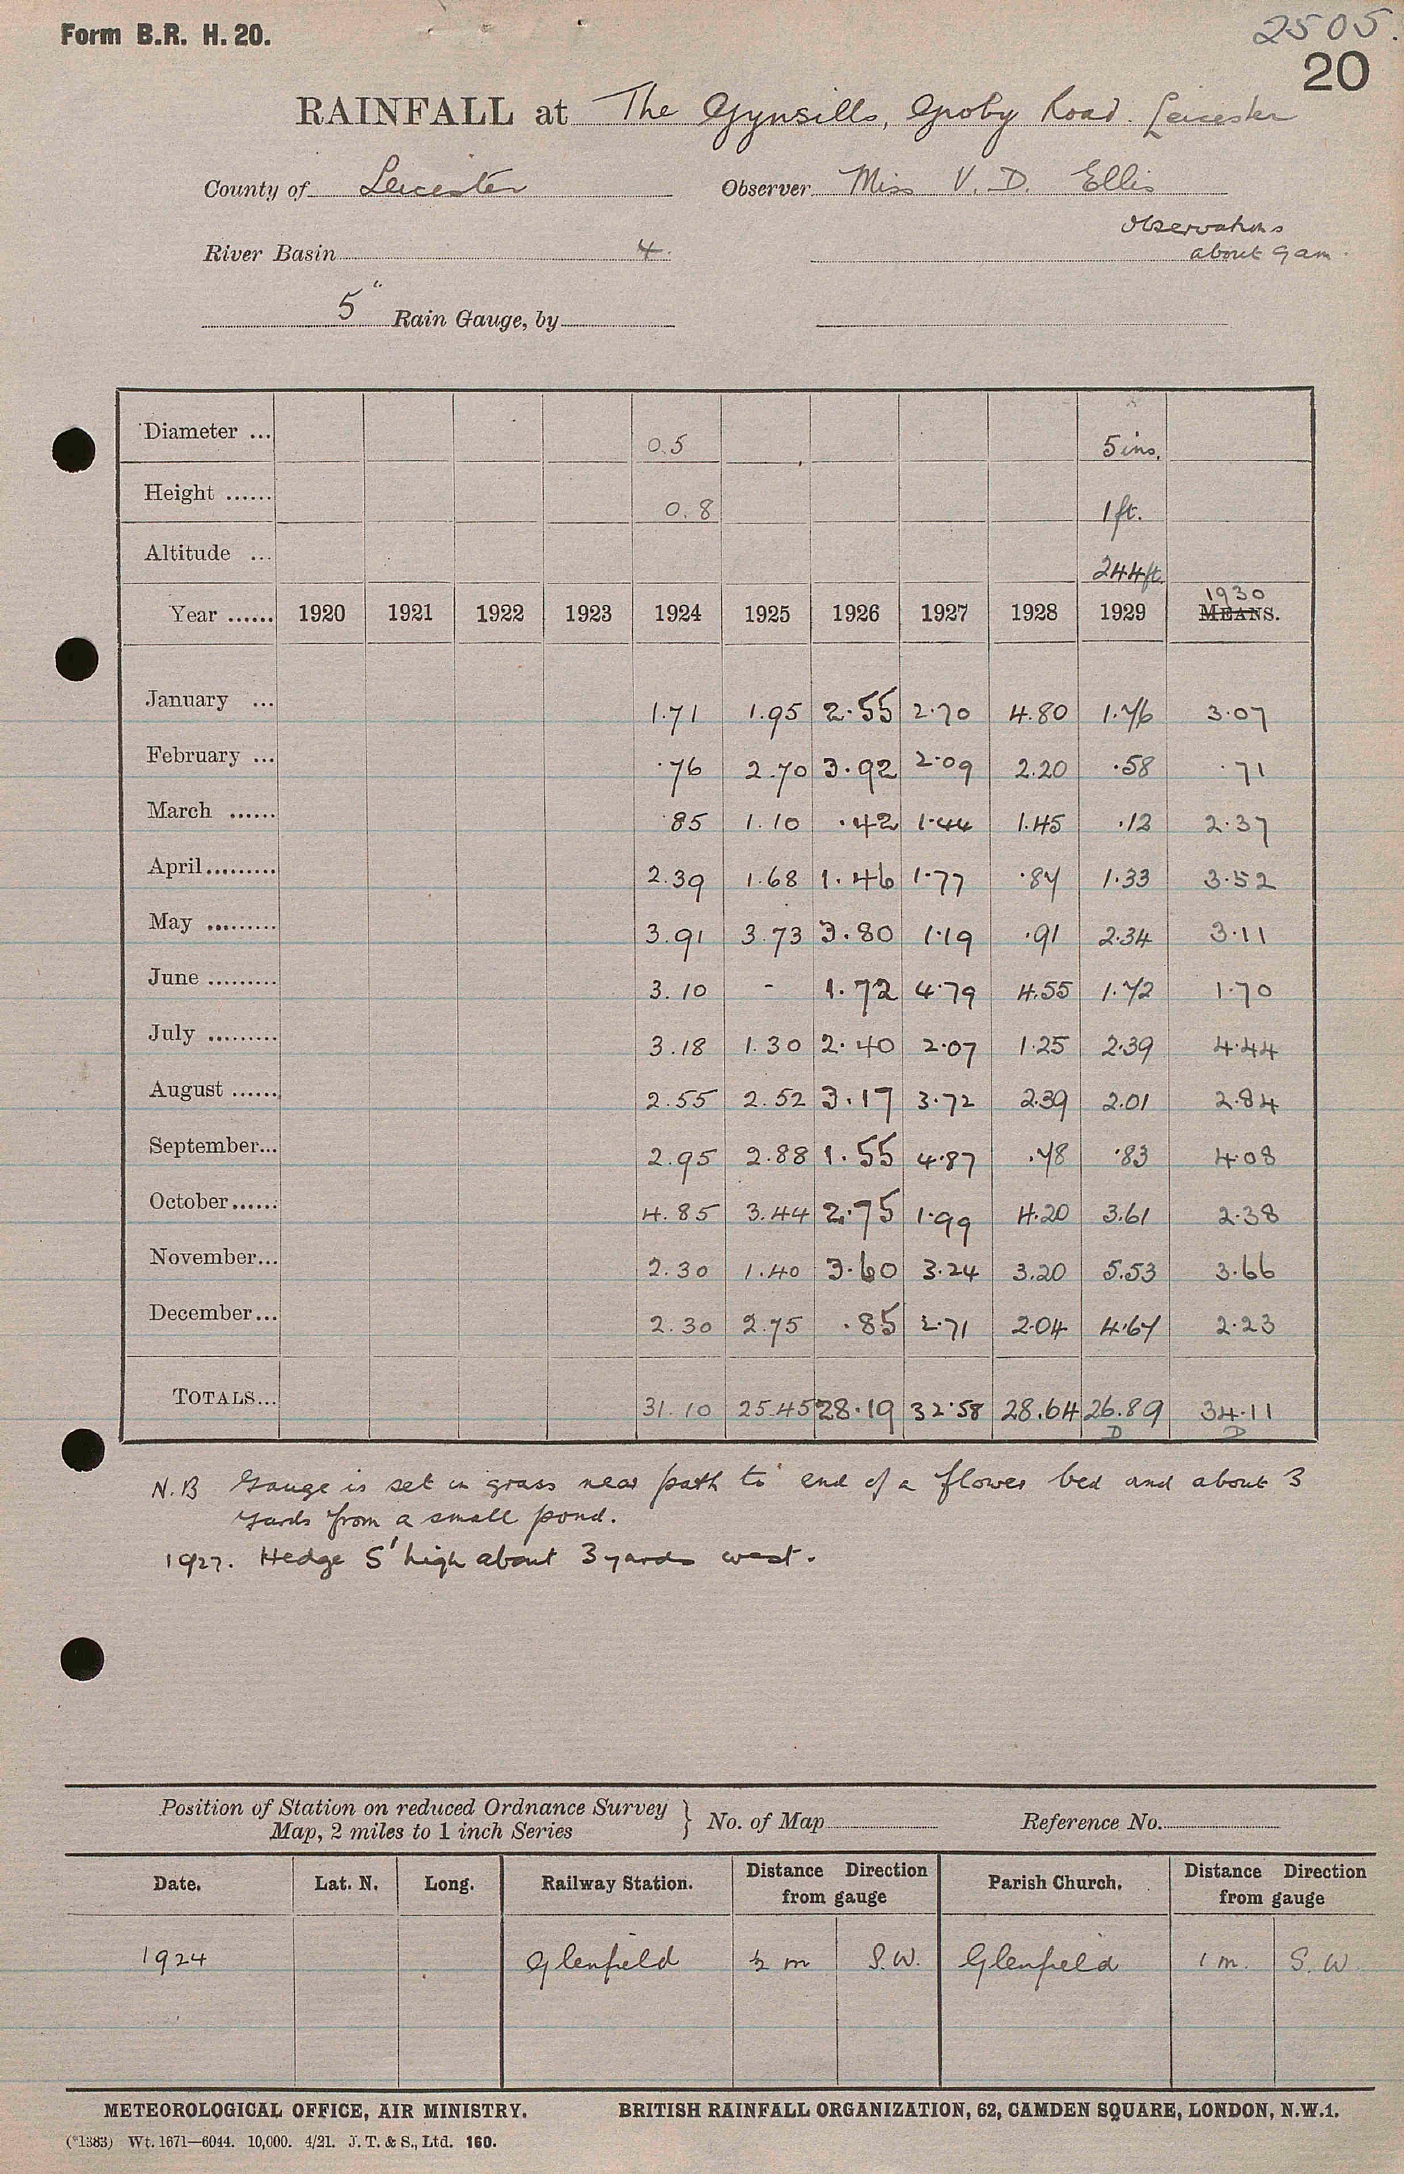 Form B.R. H. 20.
2505.
20
RAINFALL at The Gynsills, Groby Road. Leicester
County of Leicester Observer Miss V. D. Ellis
Observations
River Basin 4. about 9 am.
5" Rain Gauge, by
Diameter ... 0.5 5 ins.
Height ...... 0.8 1 ft.
Altitude ... 244 ft.
1930
Year ...... 1920 1921 1922 1923 1924 1925 1926 1927 1928 1929 MEANS.
January ... 1.71 1.95 2.55 2.70 4.80 1.76 3.07
February ... .76 2.70 3.92 2.09 2.20 .58 .71
March ...... .85 1.10 .42 1.44 1.45 .12 2.37
April......... 2.39 1.68 1.46 1.77 .87 1.33 3.52
May ......... 3.91 3.73 3.80 1.19 .91 2.34 3.11
June ......... 3.10 - 1.72 4.79 4.55 1.72 1.70
July ......... 3.18 1.30 2.40 2.07 1.25 2.39 4.44
August ...... 2.55 2.52 3.17 3.72 2.39 2.01 2.84
September... 2.95 2.88 1.55 4.87 .78 .83 4.08
October...... 4.85 3.44 2.75 1.99 4.20 3.61 2.38
November... 2.30 1.40 3.60 3.24 3.20 5.53 3.66
December... 2.30 2.75 .85 2.71 2.04 4.67 2.23
TOTALS... 31.10 25.45 28.19 32.58 28.64 26.89 34.11
D D
N.B Gauge is set in grass near path to end of a flower bed and about 3
yards from a small pond.
1927. Hedge 5' high about 3 yards west.
Position of Station on reduced Ordnance Survey
Map, 2 miles to 1 inch Series } No. of Map Reference No.
Date. Lat. N. Long. Railway Station. Distance Direction from gauge Parish Church. Distance Direction from gauge
1924 Glenfield ½ m S.W. Glenfield 1 m. S. W
METEOROLOGICAL OFFICE, AIR MINISTRY. BRITISH RAINFALL ORGANIZATION, 62, CAMDEN SQUARE, LONDON, N.W.1.
(*1383) Wt. 1671—6044. 10,000. 4/21. J. T. & S., Ltd. 160.